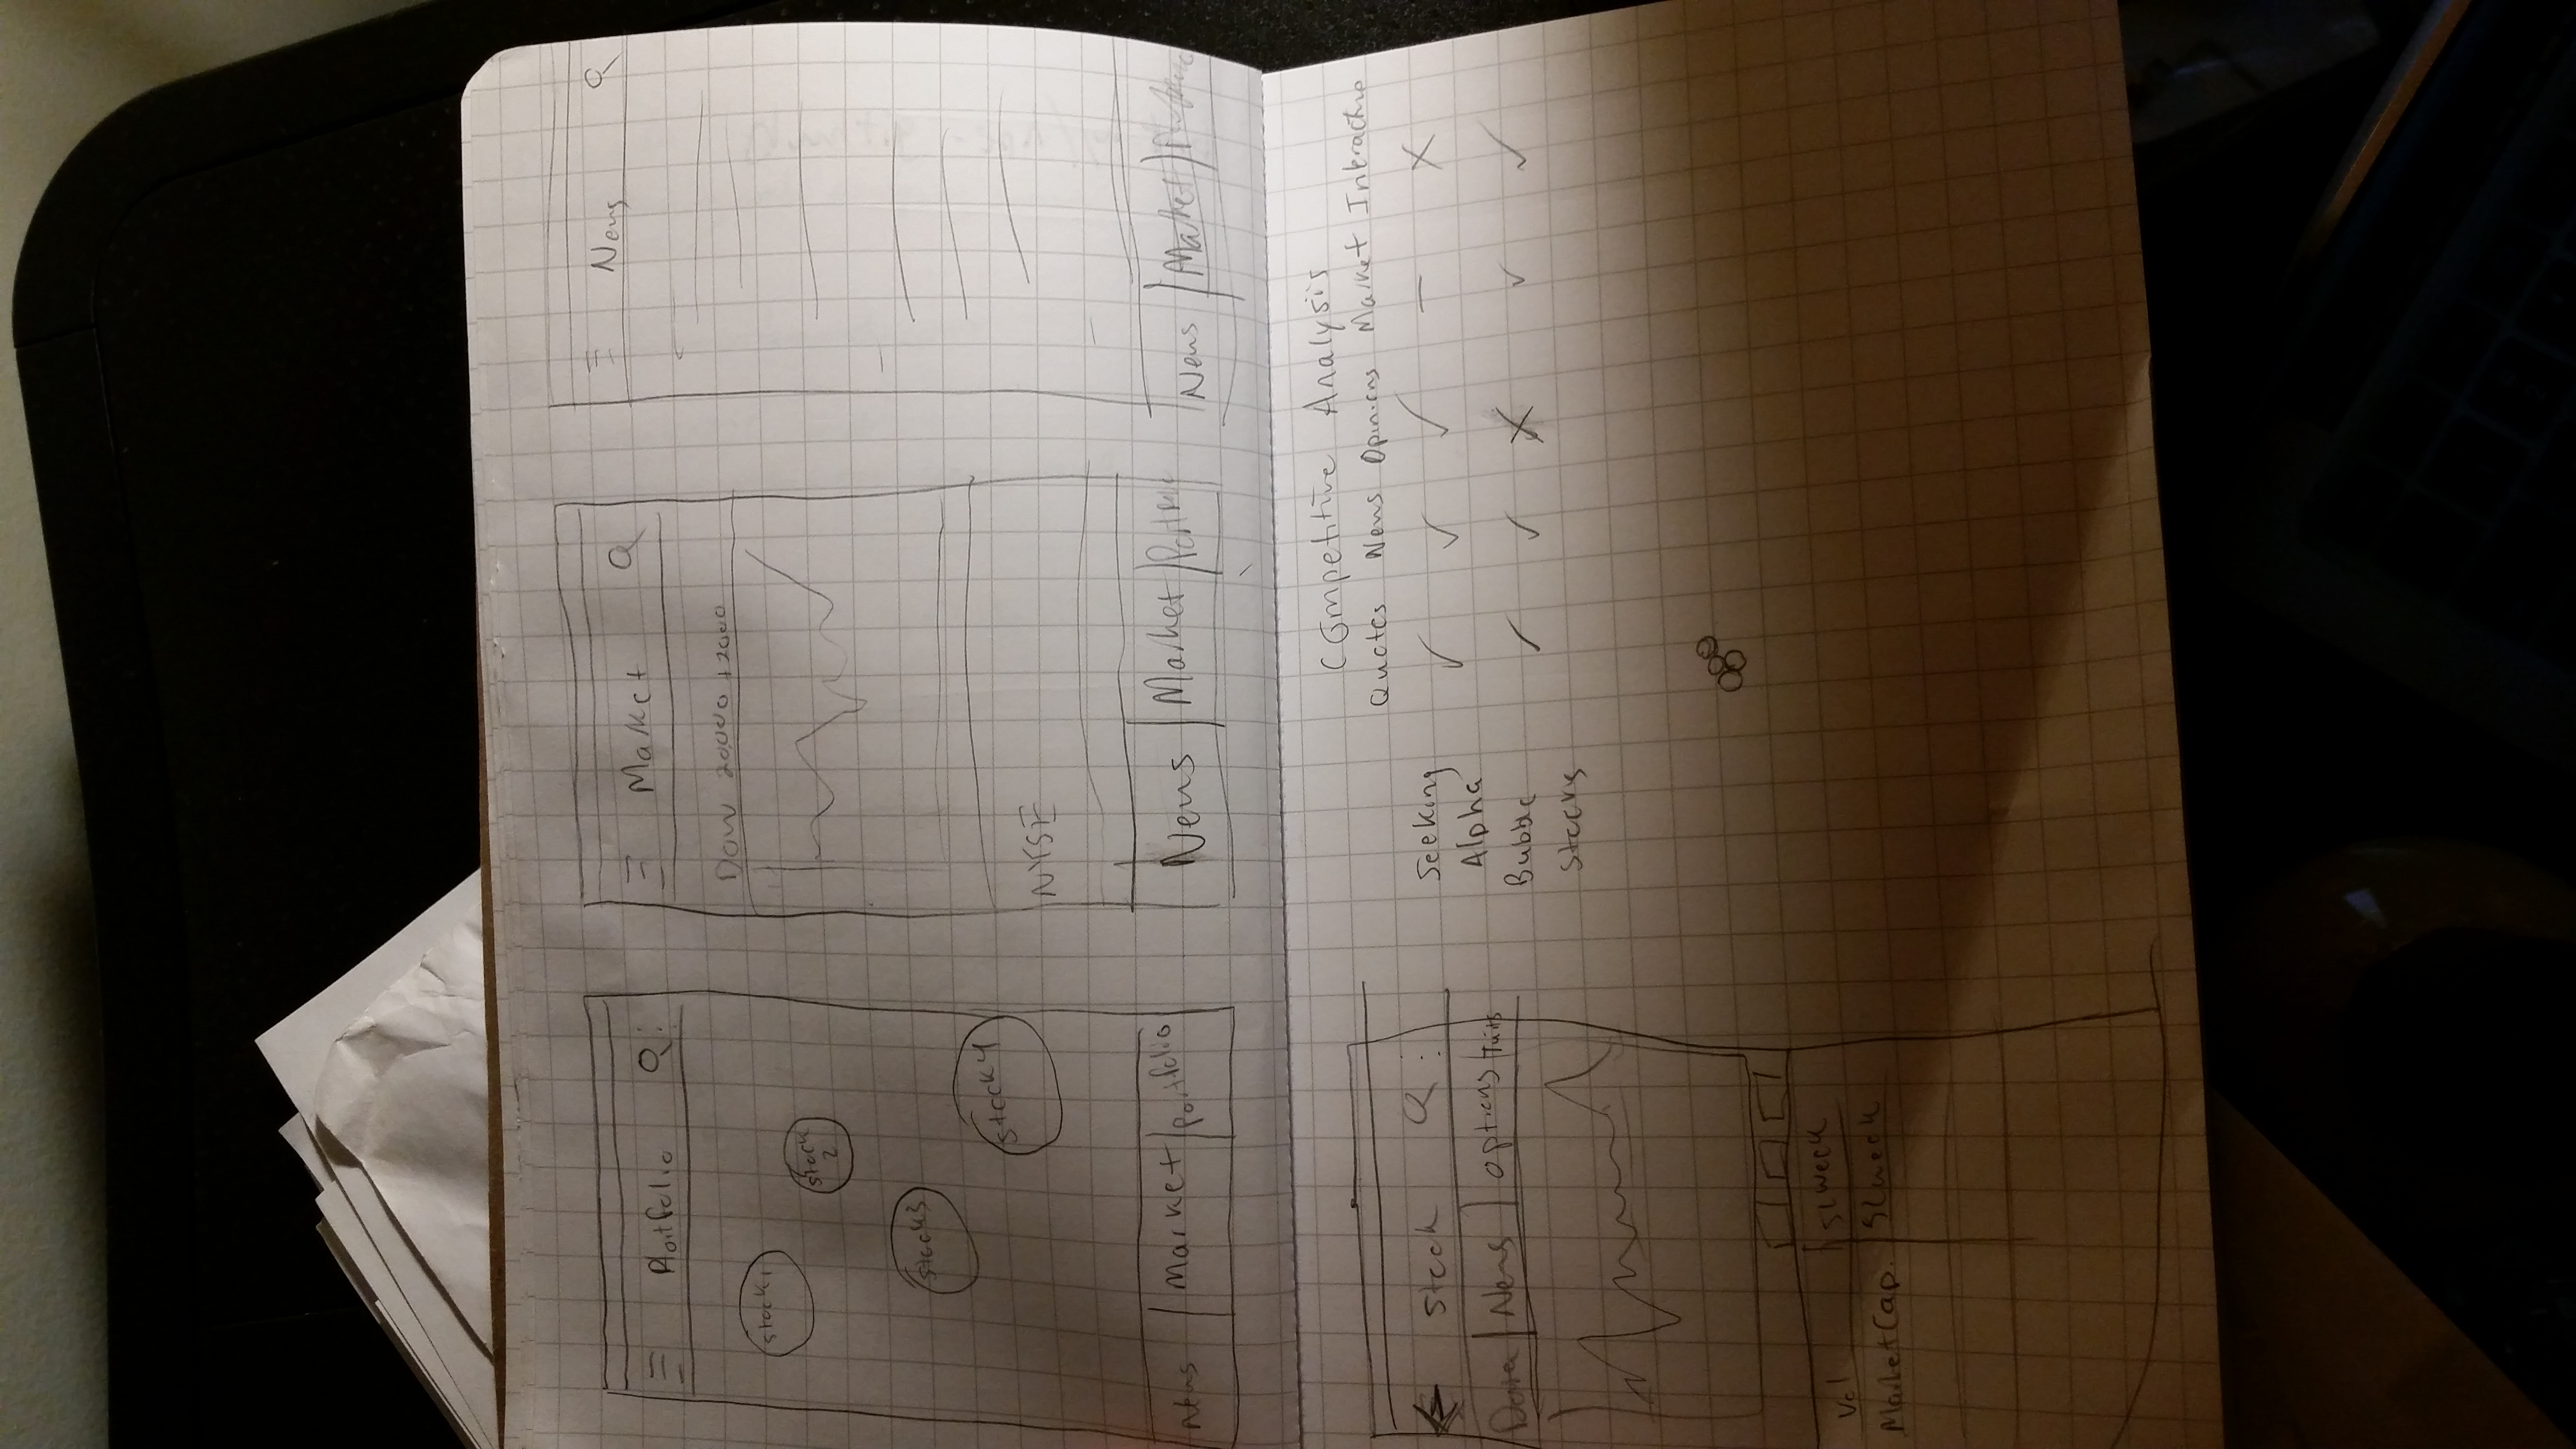 Portfolio
stock1
stock
2
stock3
stock4
News Market Portfolio
Market
Dow 20,000 +2000
NYSE
News Market
News
News Market
Stock
Data News options
Vol 52 week
Market Cap. 52 week
Competitive Analysis
Quotes News Opinions Market
Seeking ✓ ✓ ✓ — X
Alpha
Bubble ✓ ✓ X ✓ ✓
Stocks